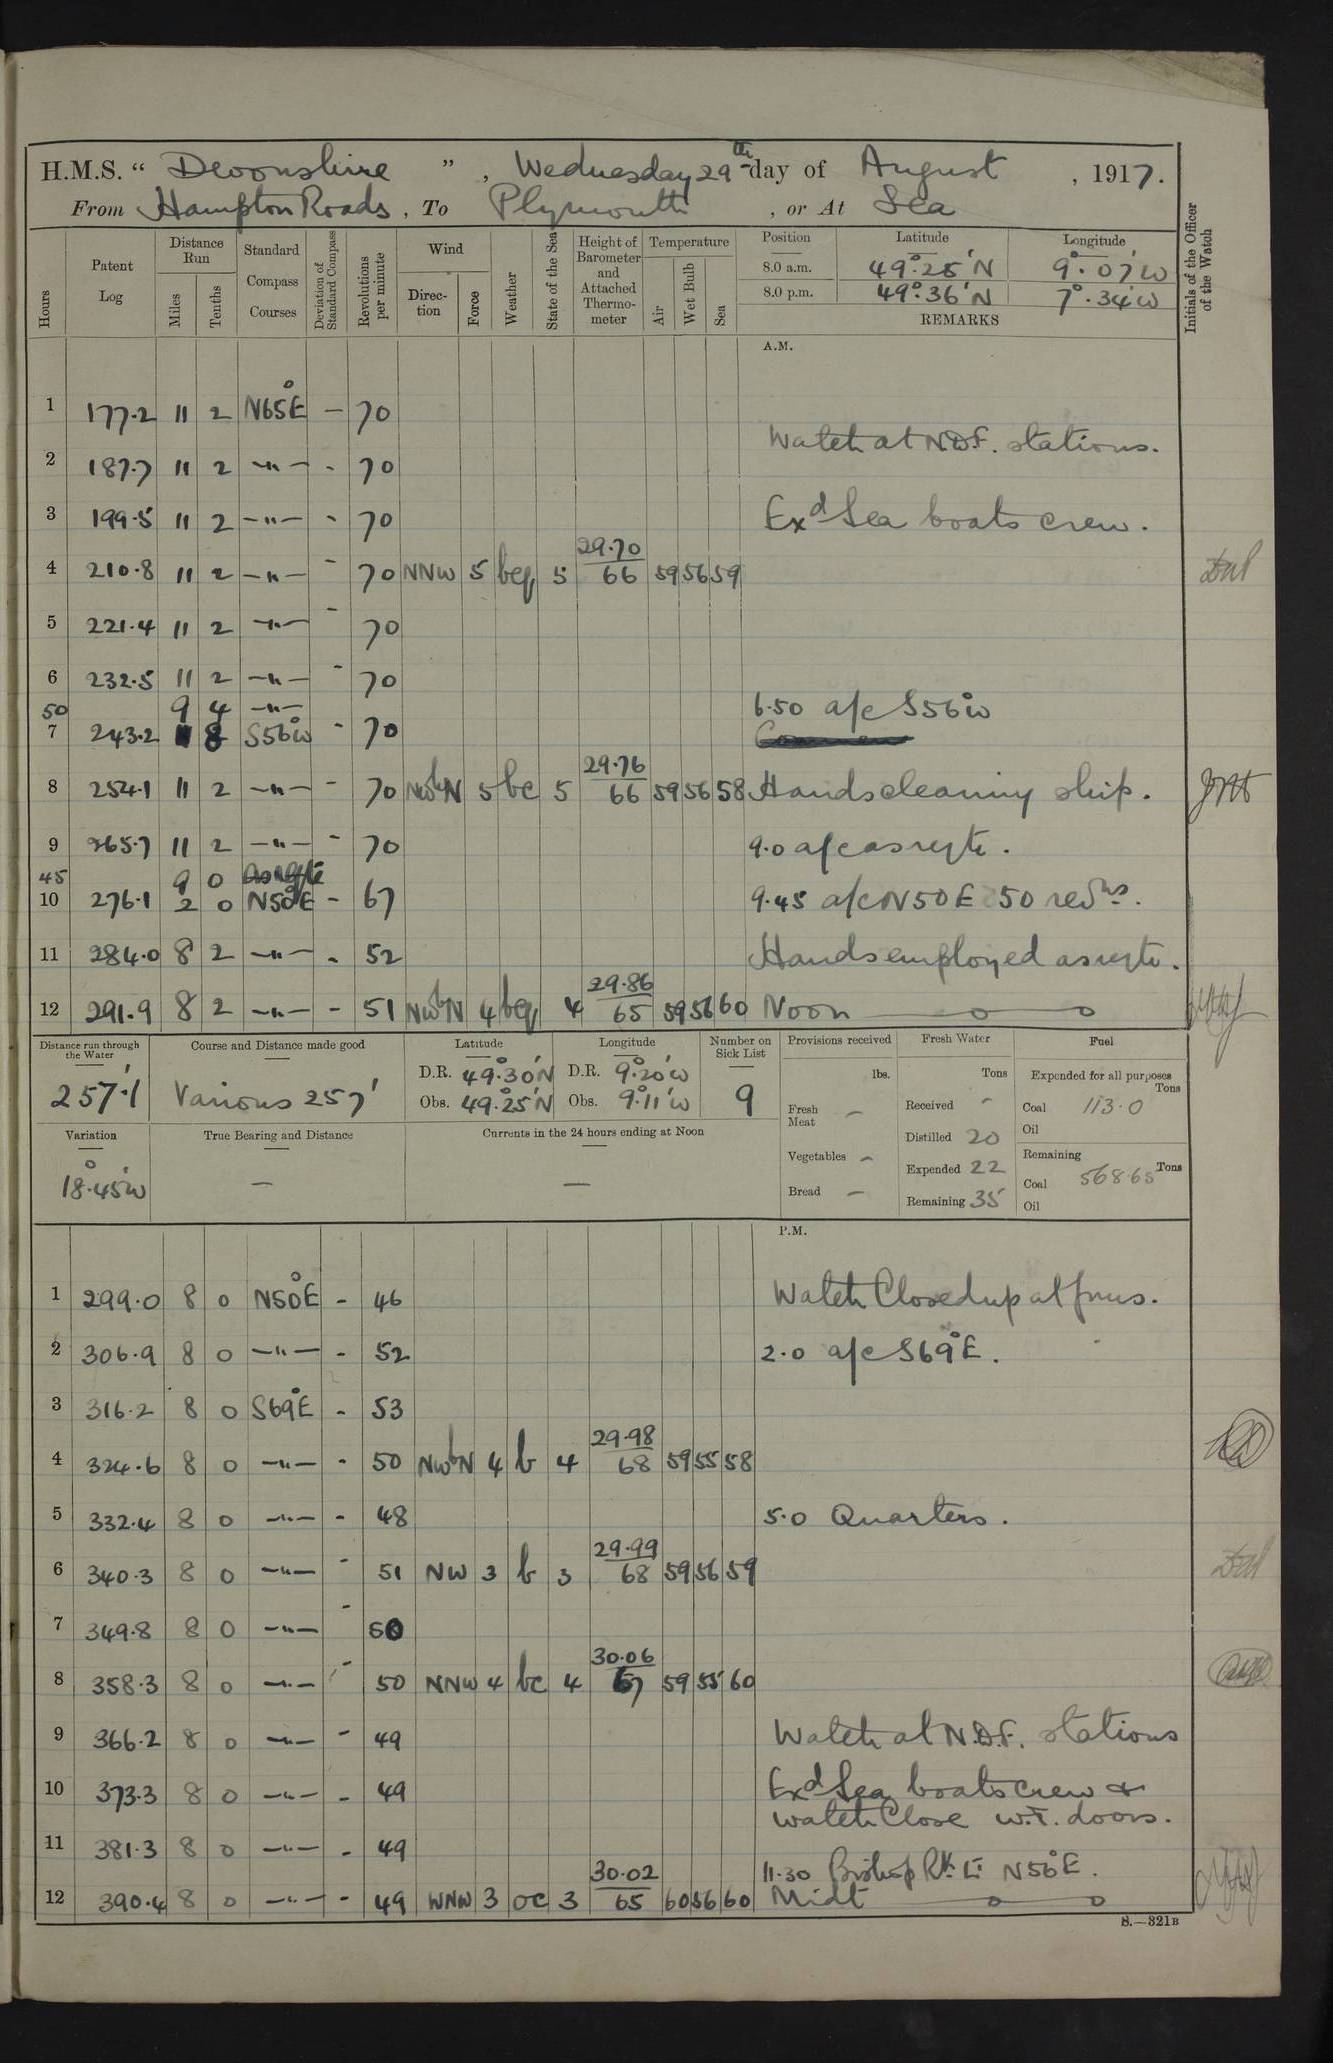 H.M.S. “ Devonshire ” , Wednesday 29th day of August , 1917.
From Hampton Roads , To Plymouth , or At Sea
Hours
Patent Log
Distance Run
Miles
Tenths
Standard Compass Courses
Deviation of Standard Compass
Revolutions per minute
Wind
Direc- tion
Force
Weather
State of the Sea
Height of Barometer and Attached Thermo- meter
Temperature
Air
Wet Bulb
Sea
Position Latitude Longitude
8.0 a.m. 49°.25'N 9°.07'W
8.0 p.m. 49°.36'N 7°.34'W
REMARKS
Initials of the Officer of the Watch
A.M.
1 177.2 11 2 N65°E – 70
Watch at N.D.F. stations.
2 187.7 11 2 –"– - 70
3 199.5 11 2 –"– - 70 Exd Sea boats crew.
29.70
4 210.8 11 2 –"– - 70 NNW 5 bcq 5 66 59 56 59
5 221.4 11 2 –"– - 70
6 232.5 11 2 –"– - 70
50 9 4 –"– 6.50 a/c S56°W
7 243.2 8 S56°W - 70
29.76
8 254.1 11 2 –"– - 70 NWbN 5 bc 5 66 59 56 58 Hands cleaning ship.
9 265.7 11 2 –"– - 70 9.0 a/c as reqte.
45 9 0 as reqte
10 276.1 2 0 N50°E - 67 9.45 a/c N50E 50 revns.
11 284.0 8 2 –"– - 52 Hands employed as reqte.
29.86
12 291.9 8 2 –"– - 51 NWbN 4 bcq 4 65 59 56 60 Noon
Distance run through the Water
257.1
Course and Distance made good
Various 257'
Latitude
D.R. 49°.30'N
Obs. 49°.25'N
Longitude
D.R. 9°.20'W
Obs. 9°.11'W
Number on Sick List
9
Variation
18°.45'W
True Bearing and Distance
—
Currents in the 24 hours ending at Noon
—
Provisions received
lbs.
Fresh Meat –
Vegetables –
Bread –
Fresh Water
Tons
Received -
Distilled 20
Expended 22
Remaining 35
Fuel
Expended for all purposes
Tons
Coal 113.0
Oil
Remaining
Coal 568.65 Tons
Oil
P.M.
1 299.0 8 0 N50°E - 46 Watch Closed up at guns.
2 306.9 8 0 –"– - 52 2.0 a/c S69°E.
3 316.2 8 0 S69°E - 53
29.98
4 324.6 8 0 –"– - 50 NWbN 4 b 4 68 59 55 58
5 332.4 8 0 –"– - 48 5.0 Quarters.
29.99
6 340.3 8 0 –"– - 51 NW 3 b 3 68 59 56 59
7 349.8 8 0 –"– - 50
30.06
8 358.3 8 0 –"– - 50 NNW 4 bc 4 67 59 55 60
9 366.2 8 0 –"– - 49 Watch at N.D.F. stations
10 373.3 8 0 –"– - 49 Exd Sea boats crew &
watch Close W.T. doors.
11 381.3 8 0 –"– - 49
30.02 11.30 Bishop Rk. Lt. N56°E.
12 390.4 8 0 –"– - 49 WNW 3 oc 3 65 60 56 60 Midt
S.—321B